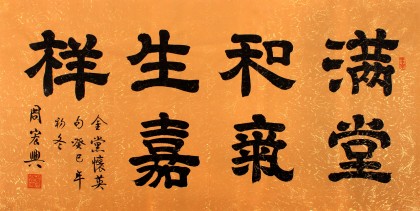 满堂
和气
生嘉
祥
金党怀英
句癸巳年
初冬
周宏兴